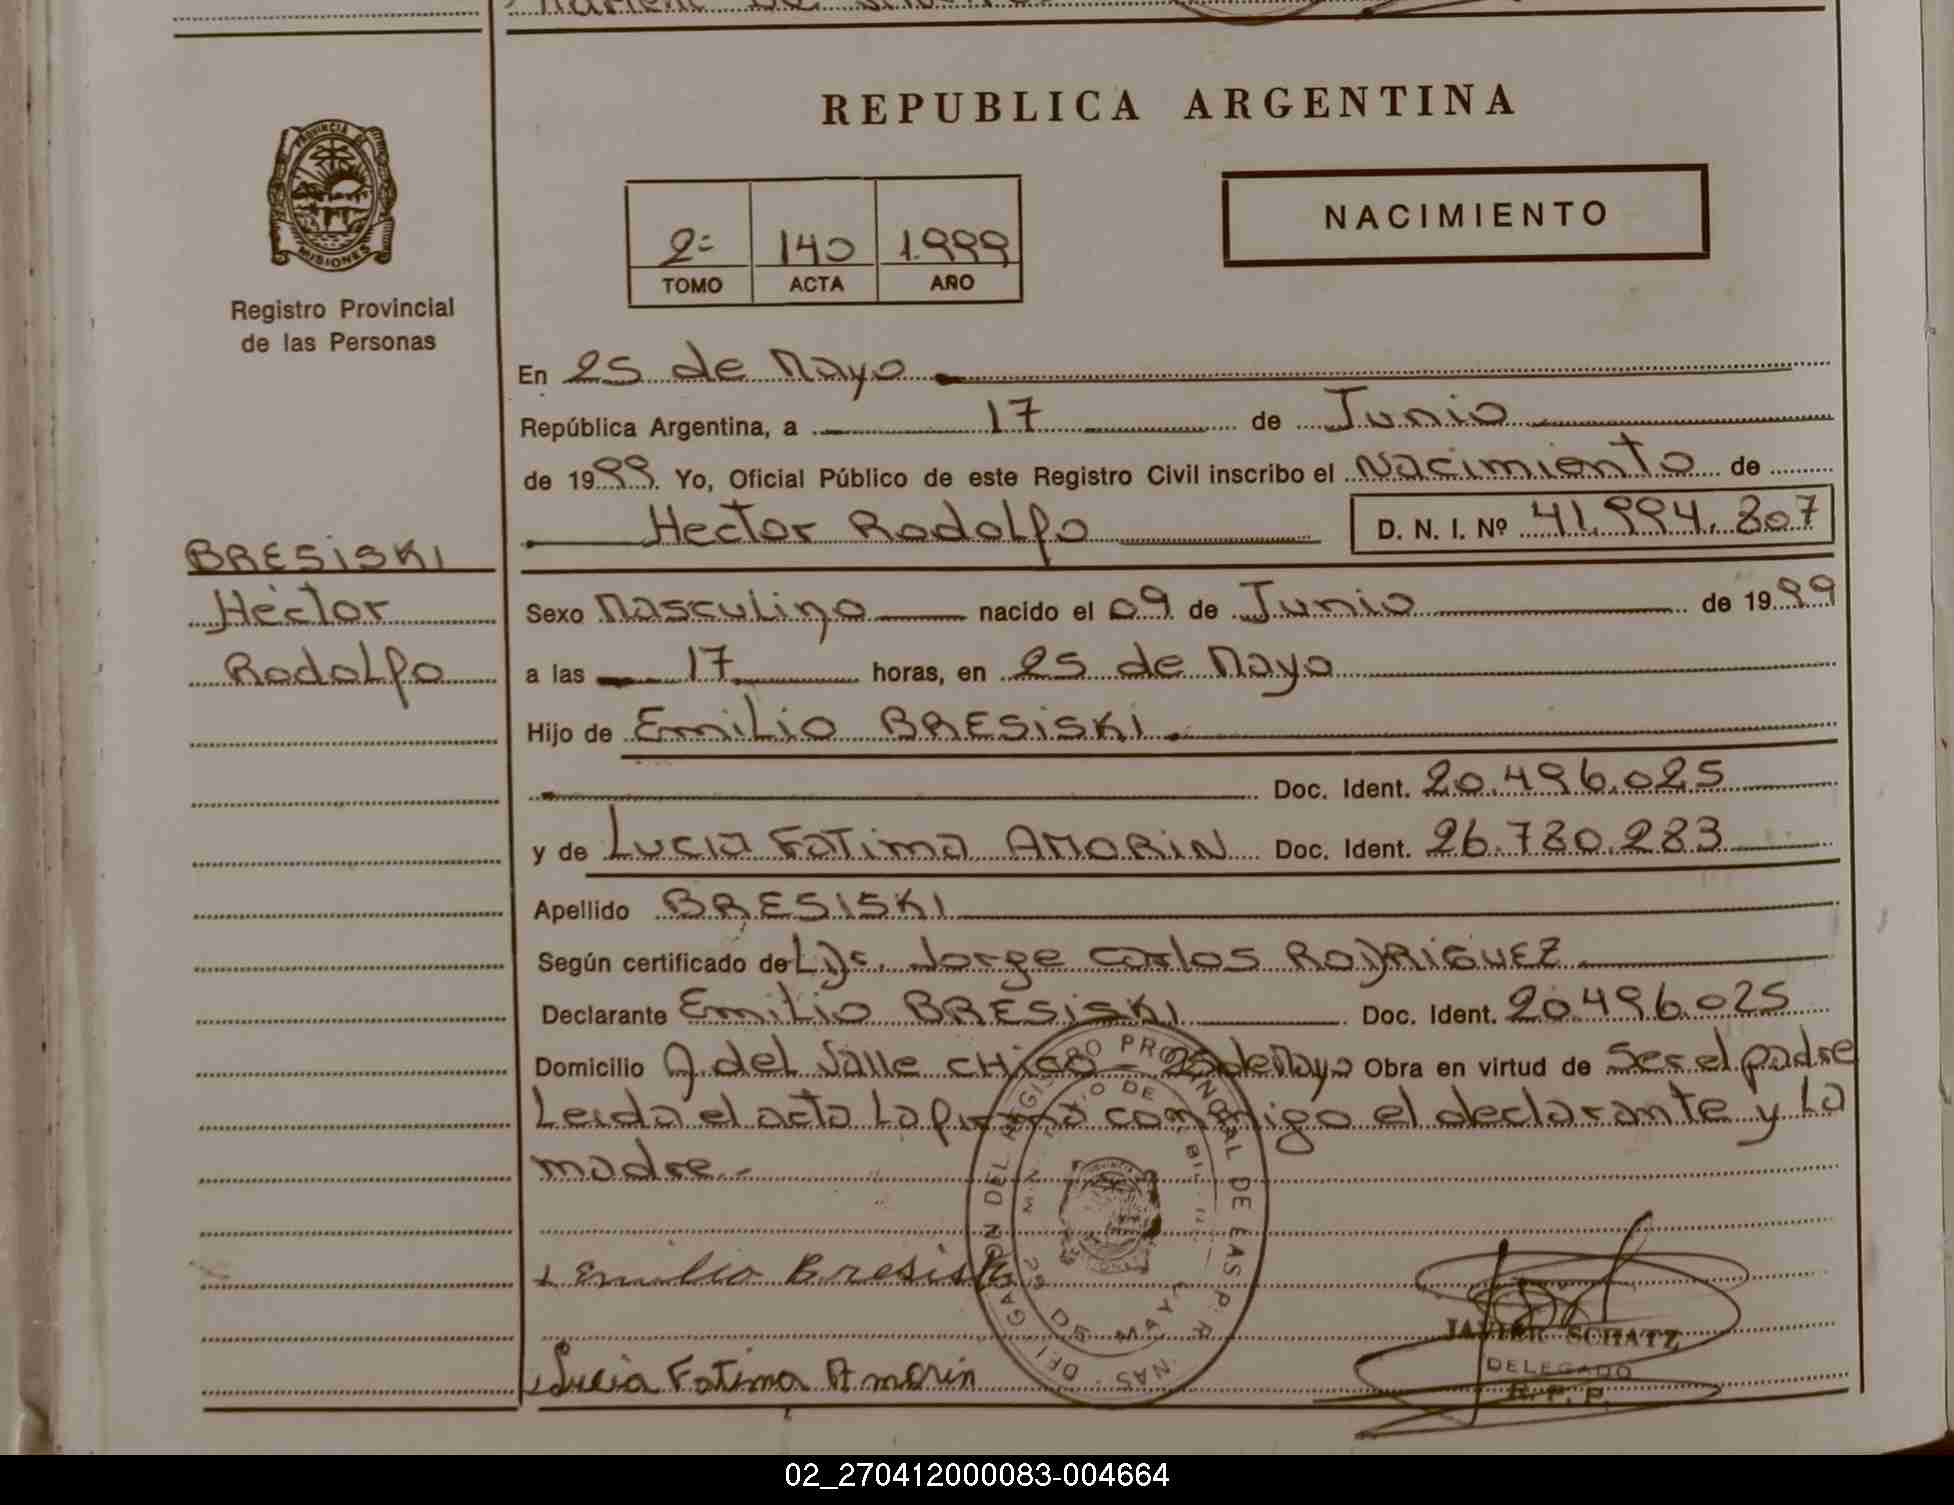 REPUBLICA ARGENTINA
PROVINCIA DE
MISIONES
Registro Provincial
de las Personas
2º 140 1.999
TOMO ACTA AÑO
NACIMIENTO
En 25 de Mayo
República Argentina, a 17 de Junio
de 1999. Yo, Oficial Público de este Registro Civil inscribo el Nacimiento de
Hector Rodolfo D. N. I. Nº 41.994.807
BRESISKI
Héctor
Rodolfo
Sexo Masculino nacido el 09 de Junio de 1999
a las 17 horas, en 25 de Mayo
Hijo de Emilio BRESISKI
Doc. Ident. 20.496.025
y de Lucia Fatima AMORIN Doc. Ident. 26.780.283
Apellido BRESISKI
Según certificado de Jorge Carlos RODRIGUEZ
Declarante Emilio BRESISKI Doc. Ident. 20.496.025
Domicilio A. del Valle CHico - 25 de Mayo Obra en virtud de ser el padre
Leida el acta La firma conmigo el declarante y La
madre.-
Emilio Bresiski
Lucia Fatima Amorin
JAVIER SCHATZ
DELEGADO
R. P. P.
02_270412000083-004664